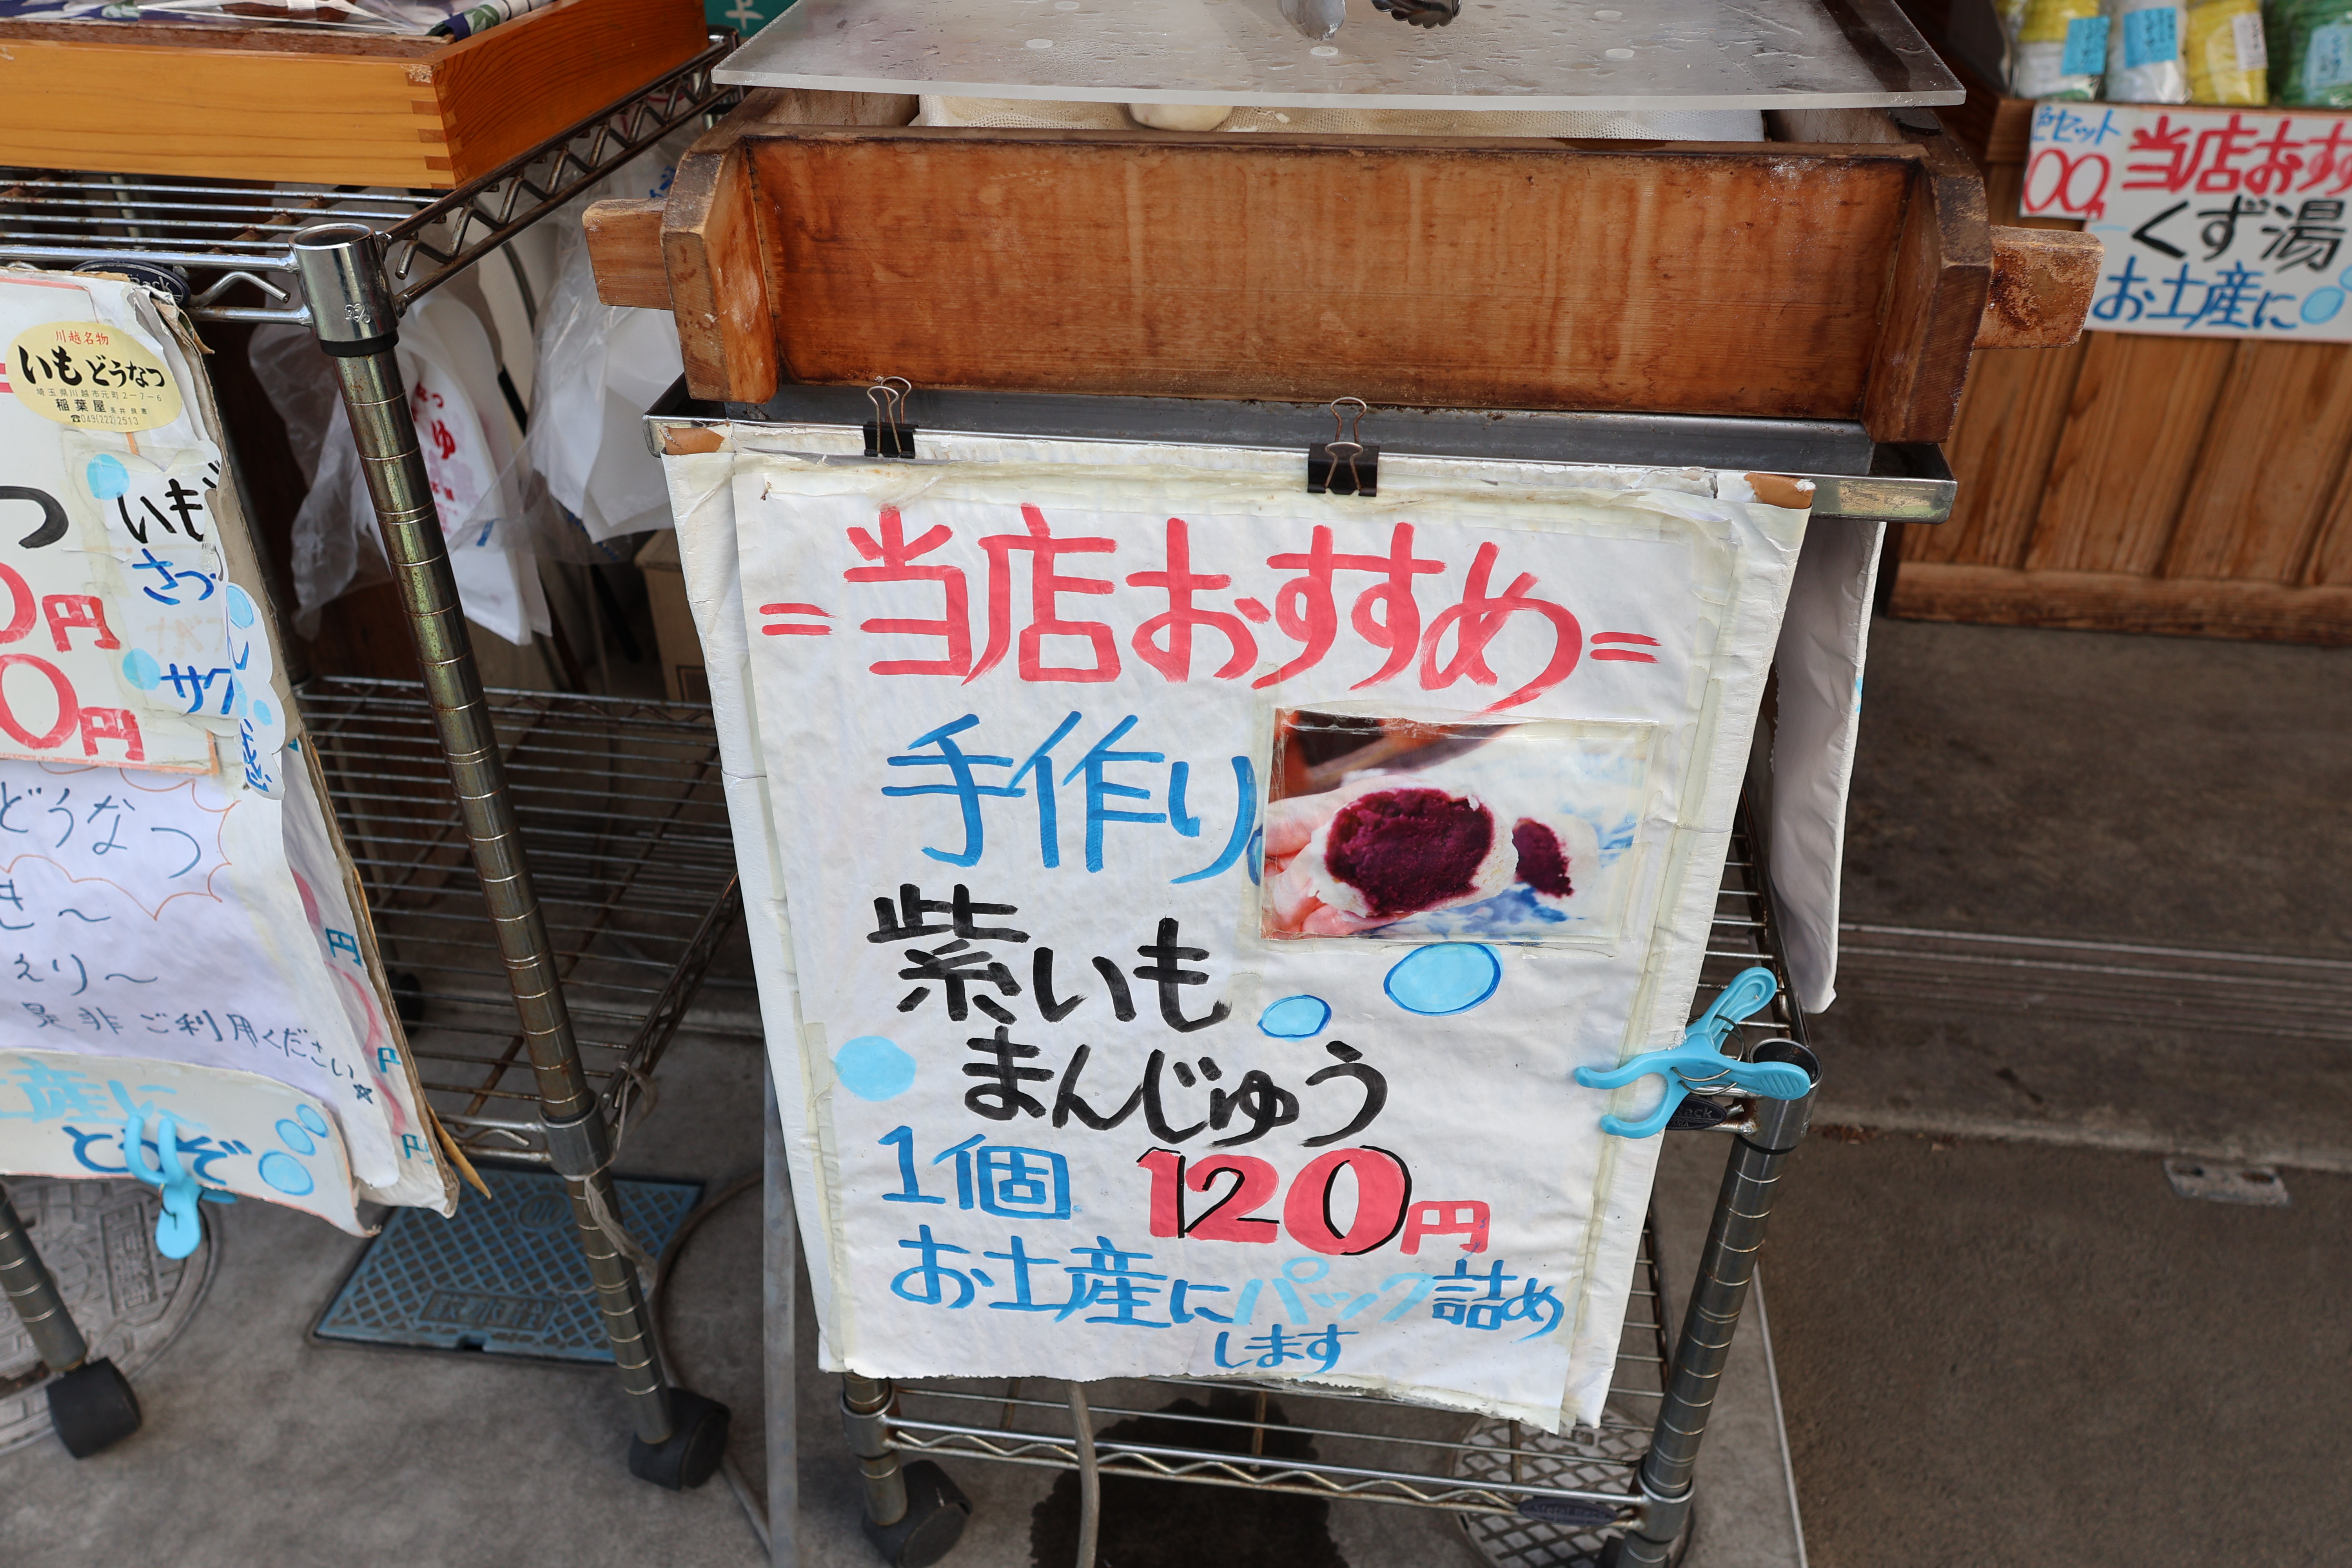 川越名物
いもどうなつ
埼玉県川越市元町2-7-6
稲葉屋
☎049(222)2513
いも
さつ
サク
円
円
どうなつ
き〜
えり〜
是非ご利用ください☆
土産に
どうぞ
円
円
円
=当店おすすめ=
手作り
紫いも
まんじゅう
1個 120円
お土産にパック詰め
します
色セット
00
当店おすす
くず湯
お土産に